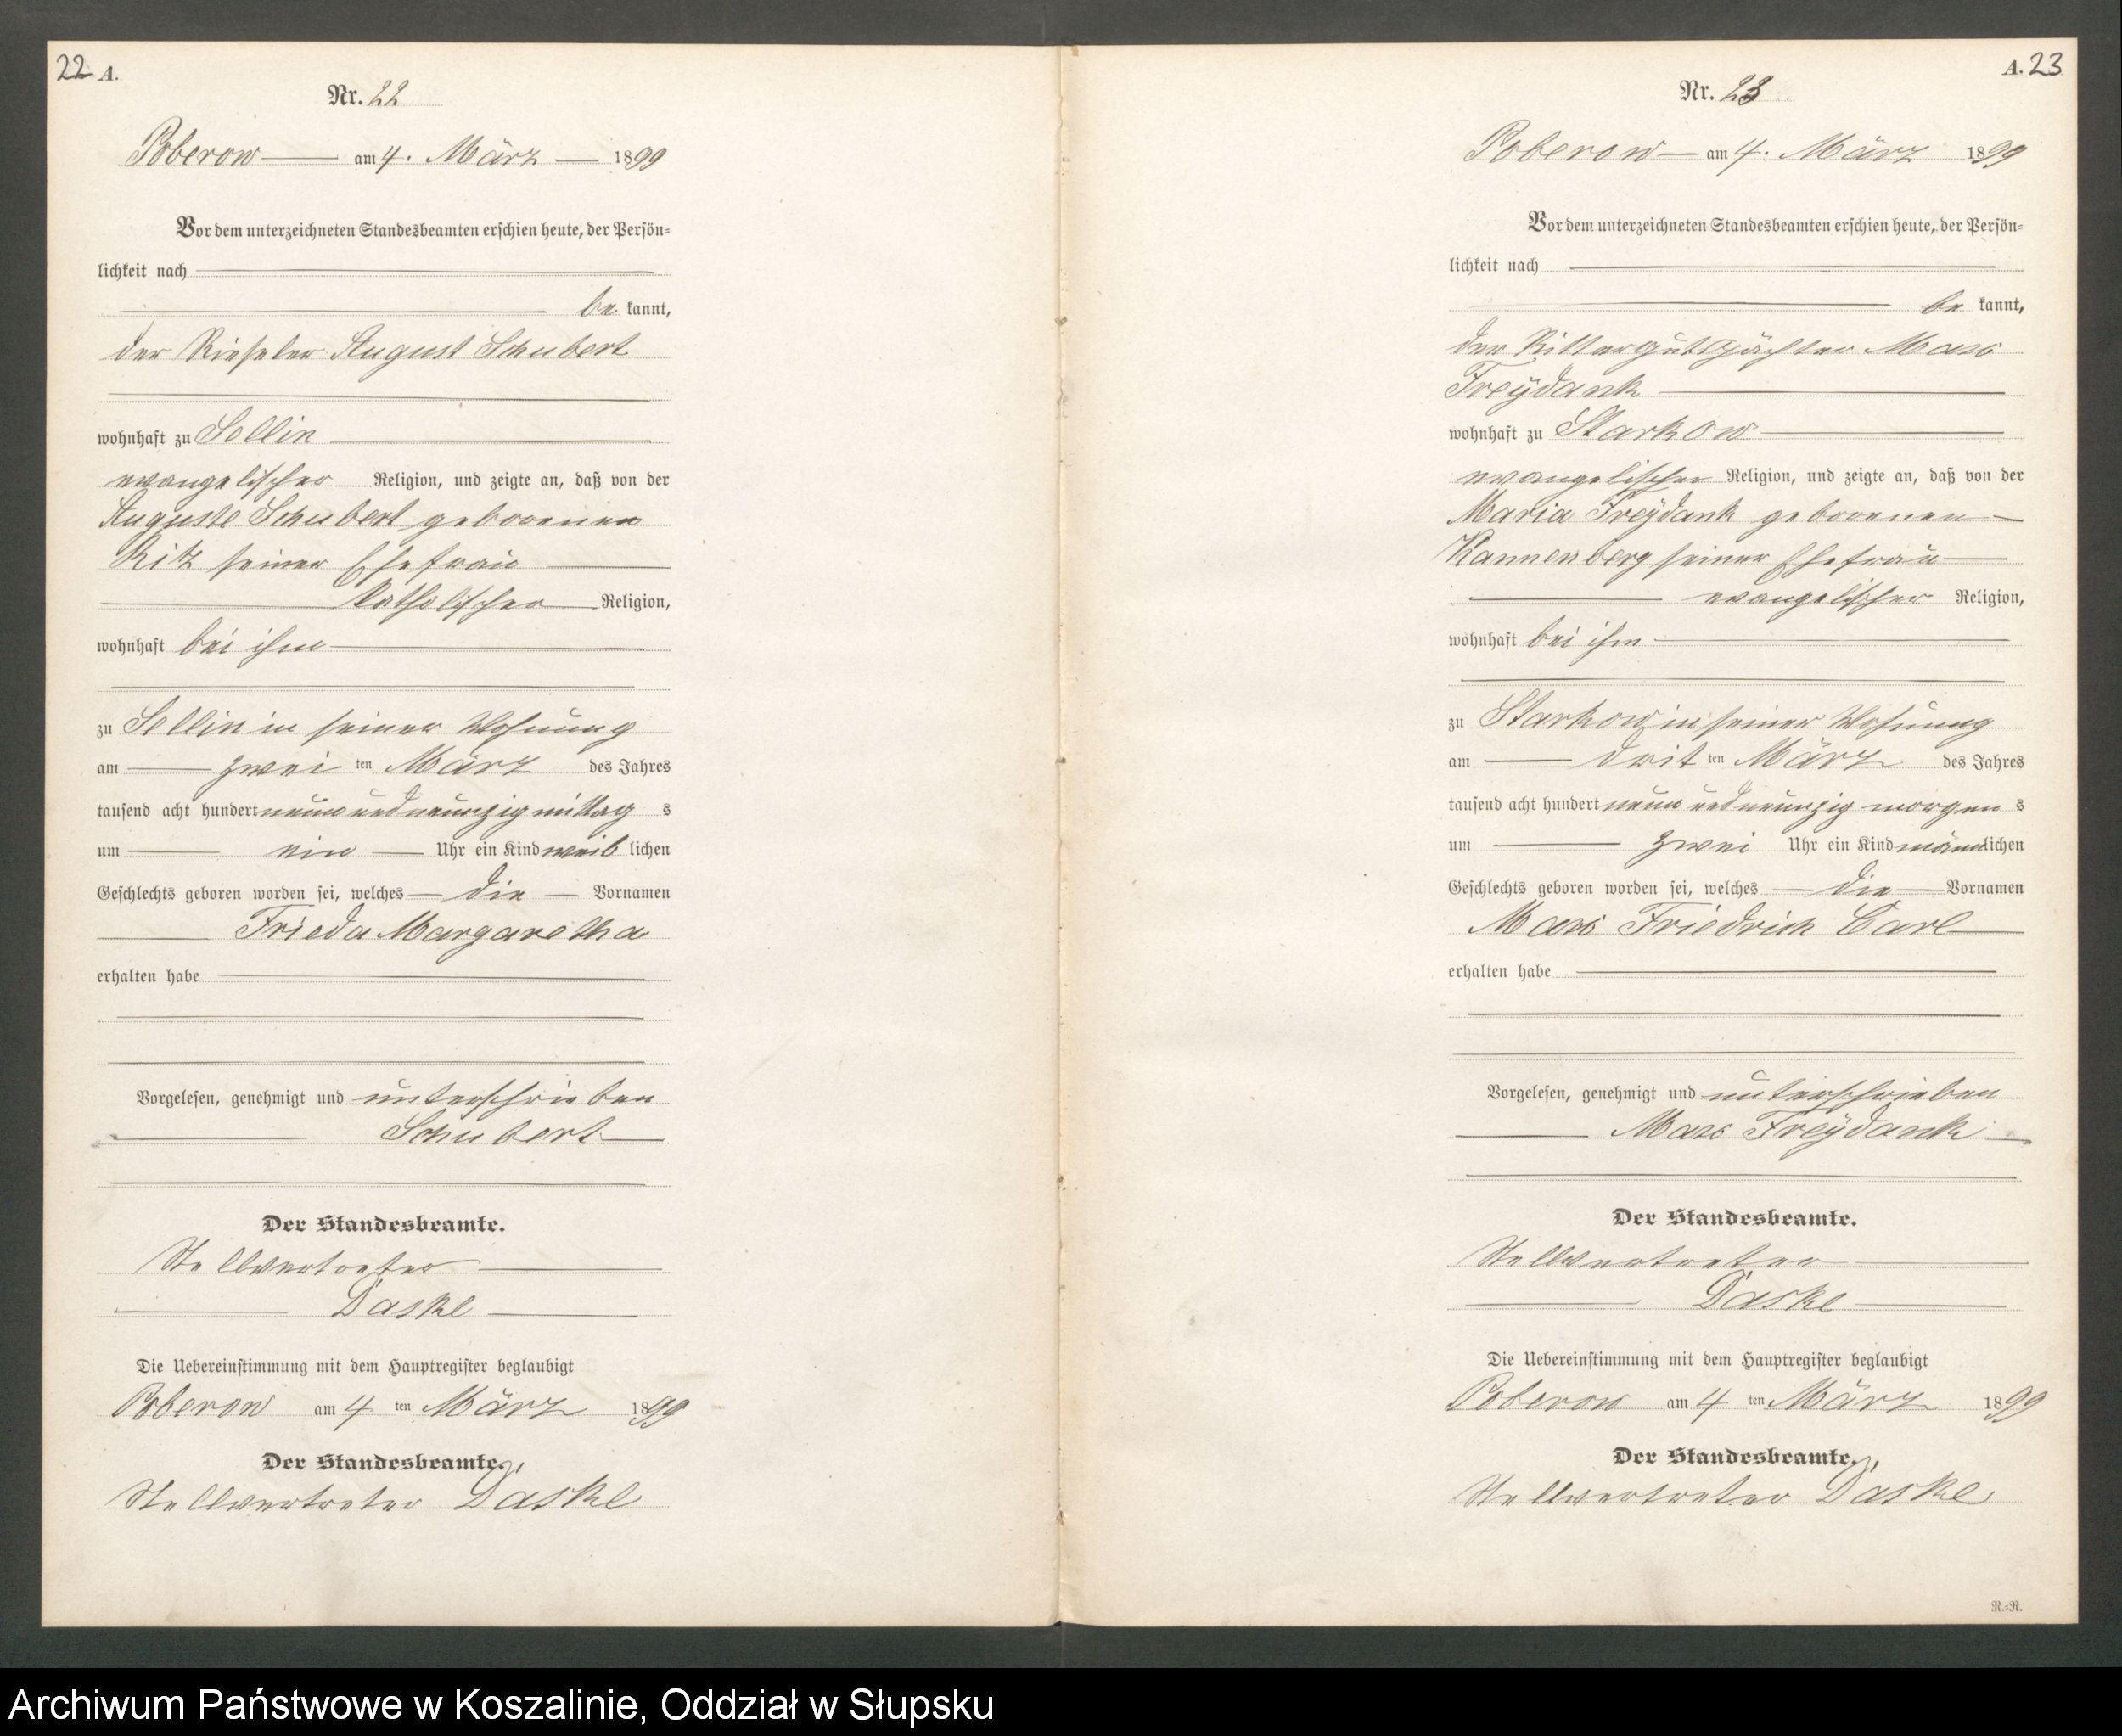 22 A.
Nr. 22
Poberow am 4. März 1899
Vor dem unterzeichneten Standesbeamten erschien heute, der Persön-
lichkeit nach
be kannt,
der Rieseler August Schubert
wohnhaft zu Sellin
evangelischer Religion, und zeigte an, daß von der
Auguste Schubert geborenen
Ritz seiner Ehefrau
katholischer Religion,
wohnhaft bei ihm
zu Sellin in seiner Wohnung
am zwei ten März des Jahres
tausend acht hundert neun und neunzig mittag s
um ein Uhr ein Kind weib lichen
Geschlechts geboren worden sei, welches die Vornamen
Frieda Margaretha
erhalten habe
Vorgelesen, genehmigt und unterschrieben
Schubert
Der Standesbeamte.
Stellvertreter
Daske
Die Uebereinstimmung mit dem Hauptregister beglaubigt
Poberow am 4 ten März 1899
Der Standesbeamte.
Stellvertreter Daske
A. 23
Nr. 23
Poberow am 4. März 1899
Vor dem unterzeichneten Standesbeamten erschien heute, der Persön-
lichkeit nach
be kannt,
der Rittergutspächter Max
Freÿdank
wohnhaft zu Starkow
evangelischer Religion, und zeigte an, daß von der
Maria Freÿdank geborenen
Kannenberg seiner Ehefrau
evangelischer Religion,
wohnhaft bei ihm
zu Starkow in seiner Wohnung
am drit ten März des Jahres
tausend acht hundert neun und neunzig morgen s
um zwei Uhr ein Kind männlichen
Geschlechts geboren worden sei, welches die Vornamen
Max Friedrich Carl
erhalten habe
Vorgelesen, genehmigt und unterschrieben
Max Freÿdank
Der Standesbeamte.
Stellvertreter
Daske
Die Uebereinstimmung mit dem Hauptregister beglaubigt
Poberow am 4 ten März 1899
Der Standesbeamte.
Stellvertreter Daske
R.=R.
Archiwum Państwowe w Koszalinie, Oddział w Słupsku